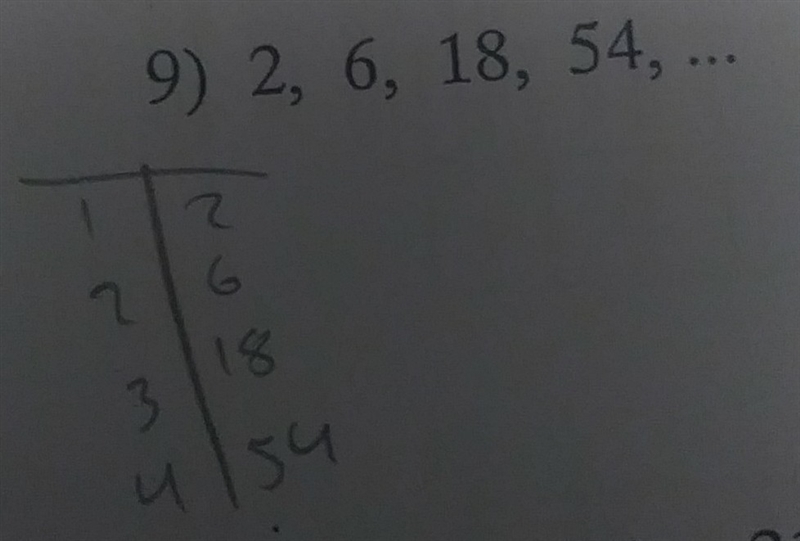 9) 2, 6, 18, 54, ...
1 2
2 6
3 18
4 54